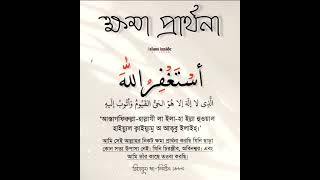 ক্ষমা প্রার্থনা
Islam inside
أستغفر الله
الَّذِي لَا إِلَهَ إِلَّا هُوَ الْحَيُّ الْقَيُّومُ وَأَتُوبُ إِلَيْهِ
'আস্তাগফিরুল্লা-হাল্লাযী লা ইলা-হা ইল্লা হুওয়াল
হাইয়্যুল ক্বাইয়্যূমু অ আতূবু ইলাইহ।'
আমি সেই আল্লাহর নিকট ক্ষমা প্রার্থনা করছি যিনি ছাড়া
কোন সত্য উপাস্য নেই। যিনি চিরঞ্জীব, অবিনশ্বর। এবং
আমি তাঁর কাছে তওবা করছি।